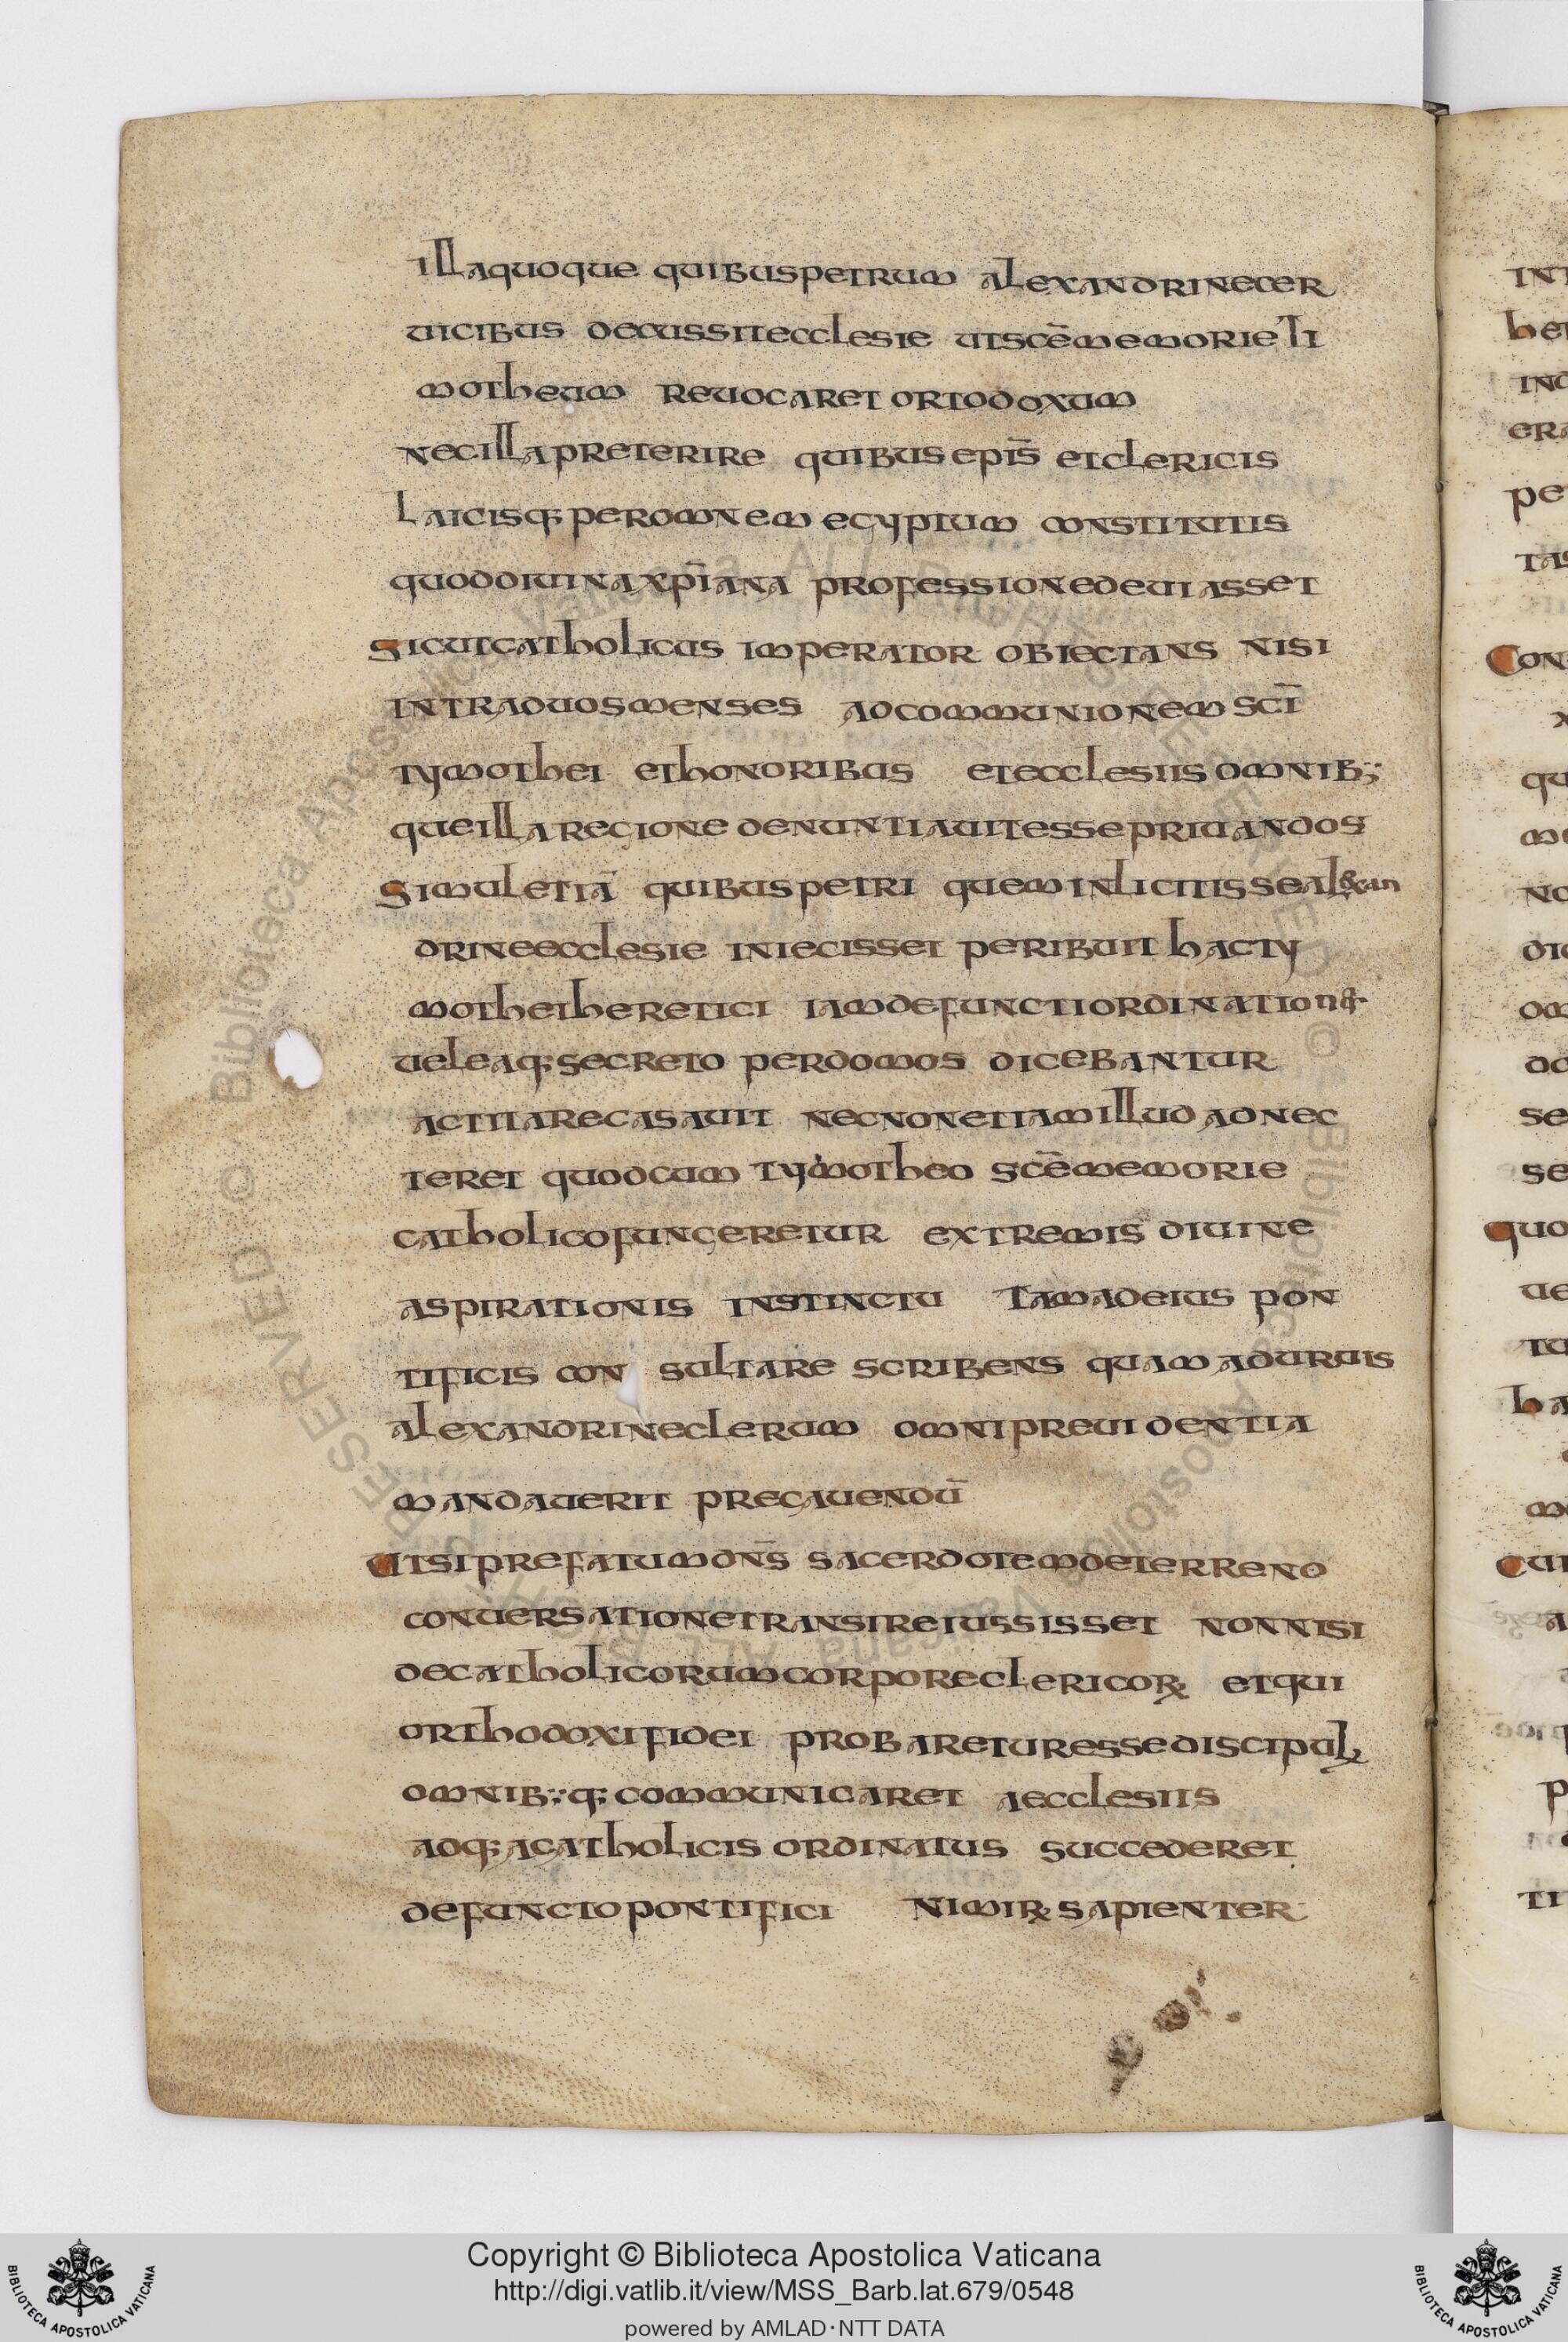 illaquoque quibuspetrum alexandrinecer
uicibus decussitecclesie utscēmemorie Ti
motheum reuocaret ortodoxum
necillapreterire quibus epis̄ etclericis
Laicisq; peromnem egyptum constitutis
quodoiuinaxpīana professionedeuiasset
sicutcatholicus imperator obiectans nisi
intraduosmenses adcommunionem scī
tymothei ethonoribus etecclesiis omnib;
queillaregione denuntiauitesse priuandos
simuletiā quibuspetri quem inlicitissealexan
drineecclesie iniecisset peribuit hacty
motheiheretici iamdefunctiordinationeq;
ueleaq; secreto perdomos dicebantur
actitarecasauit necnonetiamillud adnec
teret quodcum tymotheo scēmemorie
catholicofungeretur extremis diuine
aspirationis instinctu tamadeius pon
tificis con sultare scribens quam aduruis
alexandrineclerum omnipreuidentia
mandauerit precauendū
utsiprefatumdn̄s sacerdotemdeterreno
conuersationetransireiussisset nonnisi
decatholicorumcorporeclericoꝝ etqui
orthodoxifidei probareturessediscipul
omnib;q; communicaret aecclesiis
adq; acatholicis ordinatus succederet
defunctopontifici nimiꝝ sapienter
INT
IND
era
pe
tas
Con
x
qu
me
no
dic
om
do
se
se
quo
ue
tu
ha
cui
a
p
ti
Copyright © Biblioteca Apostolica Vaticana
http://digi.vatlib.it/view/MSS_Barb.lat.679/0548
powered by AMLAD·NTT DATA
BIBLIOTECA APOSTOLICA VATICANA
BIBLIOTECA APOSTOLICA VATICANA